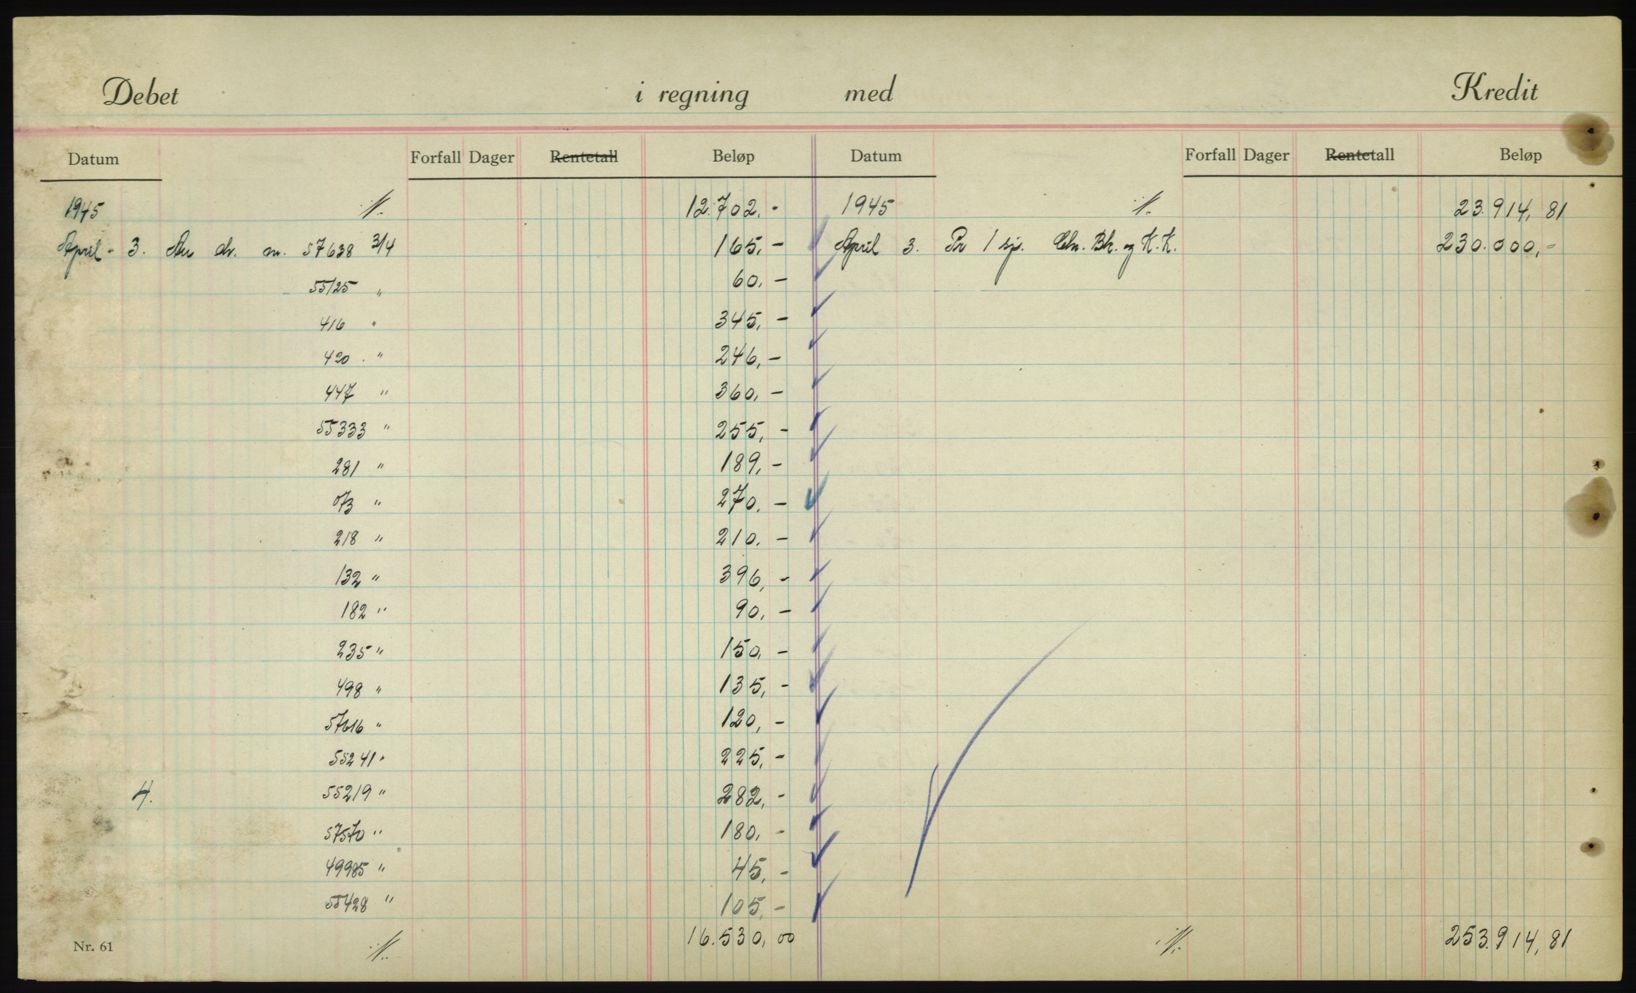 Debet i regning med Kredit
Datum Forfall Dager Rentetall Beløp Datum Forfall Dager Rentetall Beløp
1945 12.702,- 1945 23.914,81
April 3. 57638 3/4 165,- April 3. Pr 1 Bk. og K.K. 230.000,-
55125 " 60,-
416 " 345,-
420 " 246,-
447 " 360,-
55333 " 255,-
281 " 189,-
073 " 270,-
218 " 210,-
132 " 396,-
182 " 90,-
235 " 150,-
498 " 135,-
57616 " 120,-
55241 " 225,-
4. 55219 " 282,-
57570 " 180,-
49985 " 45,-
55428 " 105,-
Nr. 61 16.530,00 253.914,81